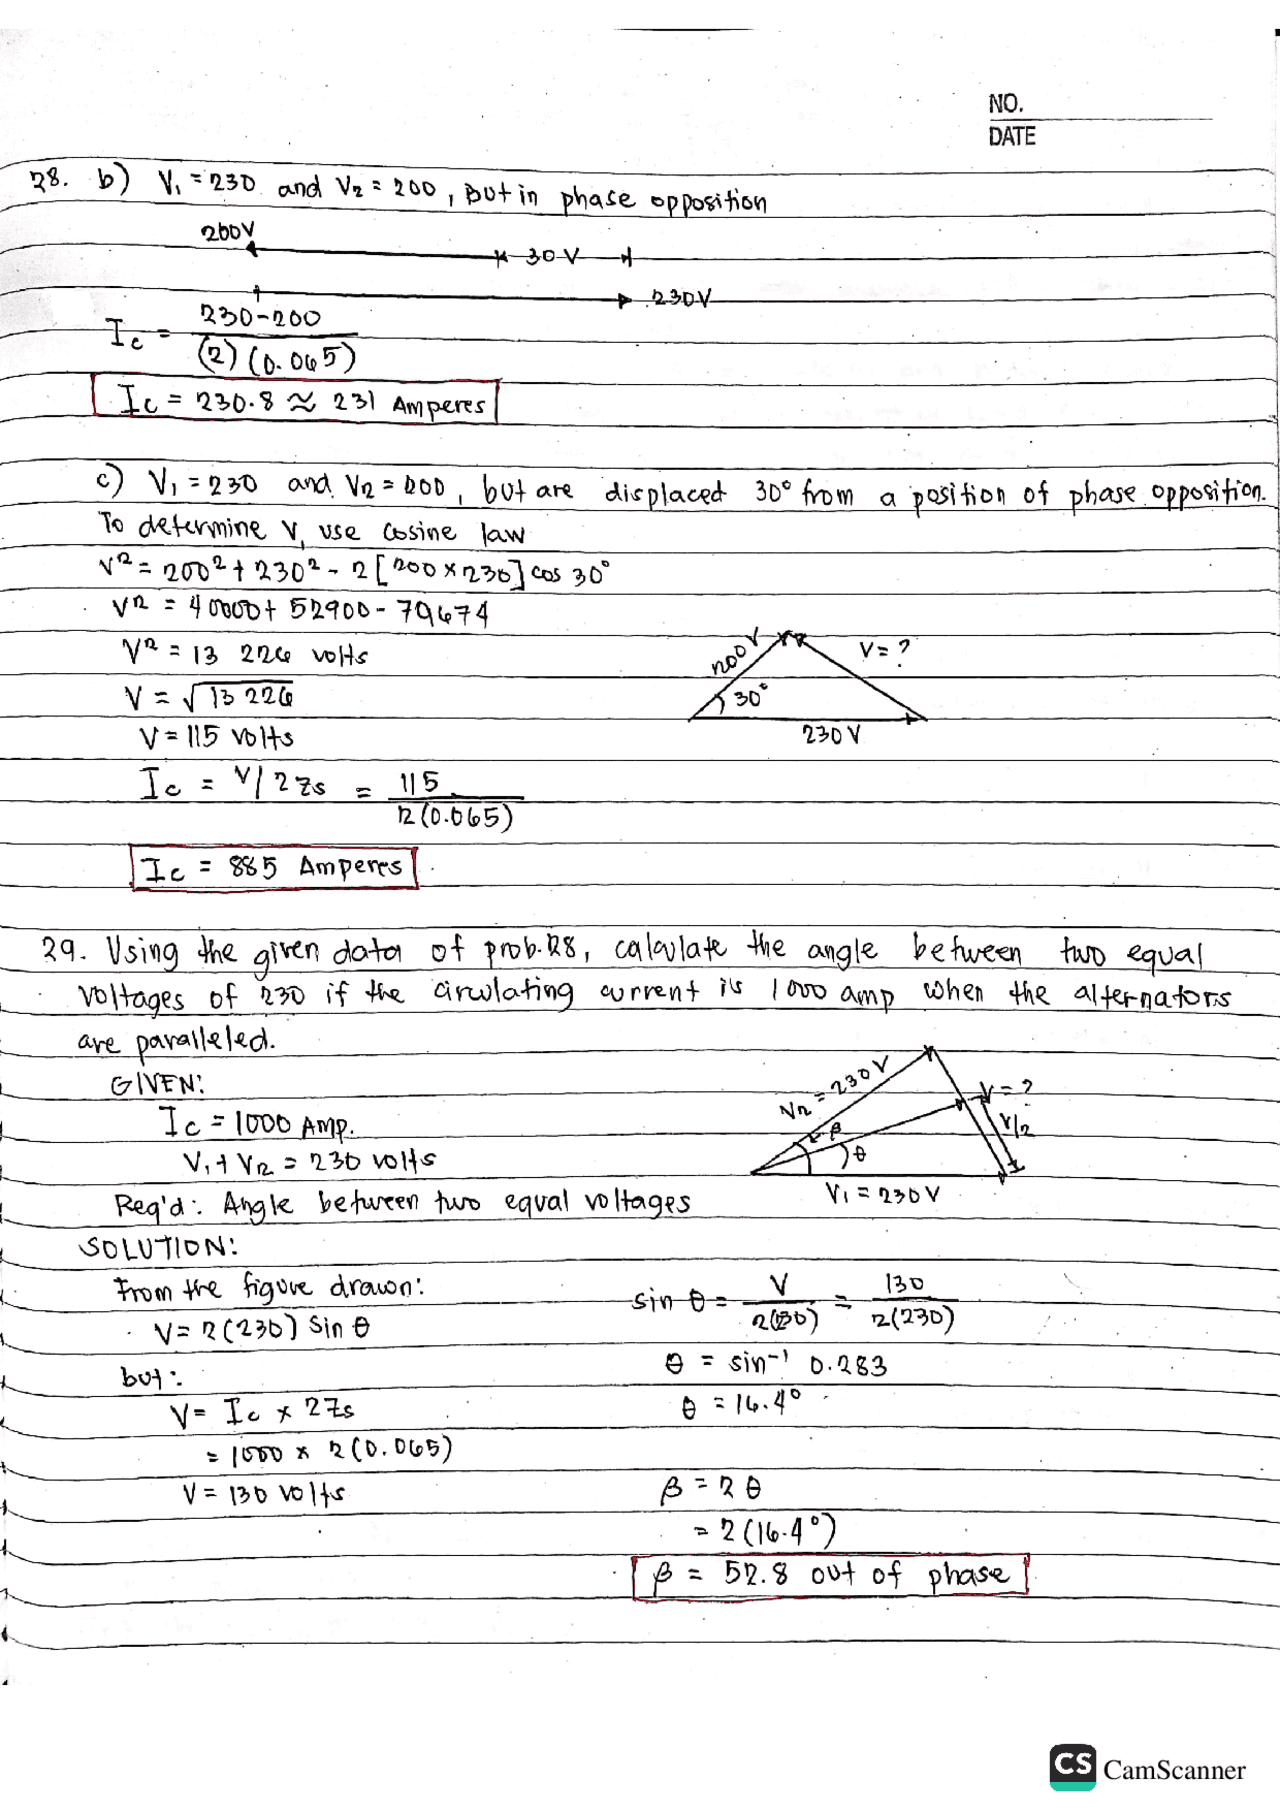 NO.
DATE
28. b) V₁ = 230 and V₂ = 200, But in phase opposition
200V
30 V
230V
I_c = (230-200) / ((2)(0.065))
I_c = 230.8 ≈ 231 Amperes
c) V₁ = 230 and V₂ = 200, but are displaced 30° from a position of phase opposition.
To determine V, use cosine law
V² = 200² + 230² - 2[200 × 230] cos 30°
V² = 40000 + 52900 - 79674
V² = 13 226 volts
V = √13 226
V = 115 volts
200 V
V = ?
30°
230 V
I_c = V/2Zs = 115 / 2(0.065)
I_c = 885 Amperes
29. Using the given data of prob. 28, calculate the angle between two equal
voltages of 230 if the circulating current is 1000 amp when the alternators
are paralleled.
GIVEN:
I_c = 1000 AMP.
V₁ + V₂ = 230 volts
V₂ = 230 V
V = ?
V/2
β
θ
V₁ = 230 V
Req'd: Angle between two equal voltages
SOLUTION:
From the figure drawn:
V = 2(230) sin θ
but:
V = I_c × 2Zs
= 1000 × 2(0.065)
V = 130 volts
sin θ = V / 2(230) = 130 / 2(230)
θ = sin⁻¹ 0.283
θ = 16.4°
β = 2θ
= 2(16.4°)
β = 52.8 out of phase
CS CamScanner